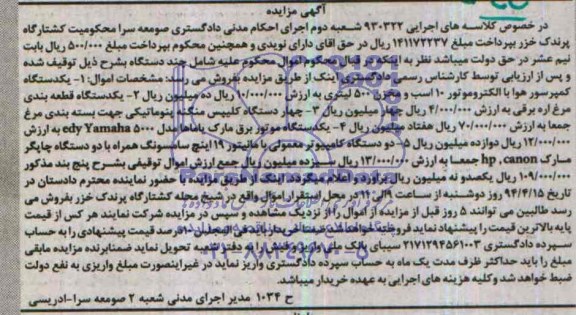 آگهی مزایده
در خصوص کلاسه های اجرایی ۹۳۰۳۲۲ شعبه دوم اجرای احکام مدنی دادگستری صومعه سرا محکومیت کشتارگاه
پرندک خزر بپرداخت مبلغ ۱۴۱۱۷۲۲۳۷ ریال در حق اقای دارای نویدی و همچنین محکوم بپرداخت مبلغ ۵۰۰/۰۰۰ ریال بابت
نیم عشر در حق دولت میباشد نظر به اینکه در قبال محکوم اموال محکوم علیه شامل چند دستگاه بشرح ذیل توقیف شده
و پس از ارزیابی توسط کارشناس رسمی دادگستری اینک از طریق مزایده بفروش می رسد: مشخصات اموال: ۱- یکدستگاه
کمپرسور هوا با الکتروموتور ۱۰ اسب و مخزن ۵۰۰ لیتری به ارزش ۱۰/۰۰۰/۰۰۰ ریال ده میلیون ریال ۲- یکدستگاه قطعه بندی
مرغ اره برقی به ارزش ۴/۰۰۰/۰۰۰ ریال چهار میلیون ریال ۳- چهار دستگاه کلیپس منگنه پنوماتیکی جهت بسته بندی مرغ
جمعا به ارزش ۷۰/۰۰۰/۰۰۰ ریال هفتاد میلیون ریال ۴- یکدستگاه موتور برق مارک یاماها مدل edy Yamaha ۵۰۰۰ به ارزش
۱۲/۰۰۰/۰۰۰ ریال دوازده میلیون ریال ۵- دو دستگاه کامپیوتر معمولی با مانیتور ۱۹ اینچ سامسونگ همراه با دو دستگاه چاپگر
مارک hp , canon جمعا به ارزش ۱۳/۰۰۰/۰۰۰ ریال سیزده میلیون ریال جمع ارزش اموال توقیفی بشرح پنج بند مذکور
۱۰۹/۰۰۰/۰۰۰ ریال یکصدو نه میلیون ریال برآورد و اعلام میگردد اینک از طریق مزایده با حضور نماینده محترم دادستان در
تاریخ ۹۴/۴/۱۵ روز دوشنبه از ساعت ۹ الی ۱۱ در محل استقرار اموال واقع در شیخ محله کشتارگاه پرندک خزر بفروش می
رسد طالبین می توانند ۵ روز قبل از مزایده از اموال را از نزدیک مشاهده و سپس در مزایده شرکت نمایند هر کس از قیمت
پایه بالاترین قیمت را پیشنهاد نماید فروخته خواهد شد ضمنا فی المجلس ۱۰ درصد قیمت پیشنهادی را به حساب
سپرده دادگستری ۲۱۷۱۲۹۴۵۶۱۰۰۳ سیبای بانک ملی واریز و فیش را به دفتر شعبه تحویل نماید ضمنا برنده مزایده مابقی
مبلغ را باید حداکثر ظرف مدت یک ماه به حساب سپرده دادگستری واریز نماید در غیر اینصورت مبلغ واریزی به نفع دولت
ضبط خواهد شد و کلیه هزینه های اجرایی به عهده خریدار میباشد.
ح ۱۰۳۴ مدیر اجرای مدنی شعبه ۲ صومعه سرا-ادریسی